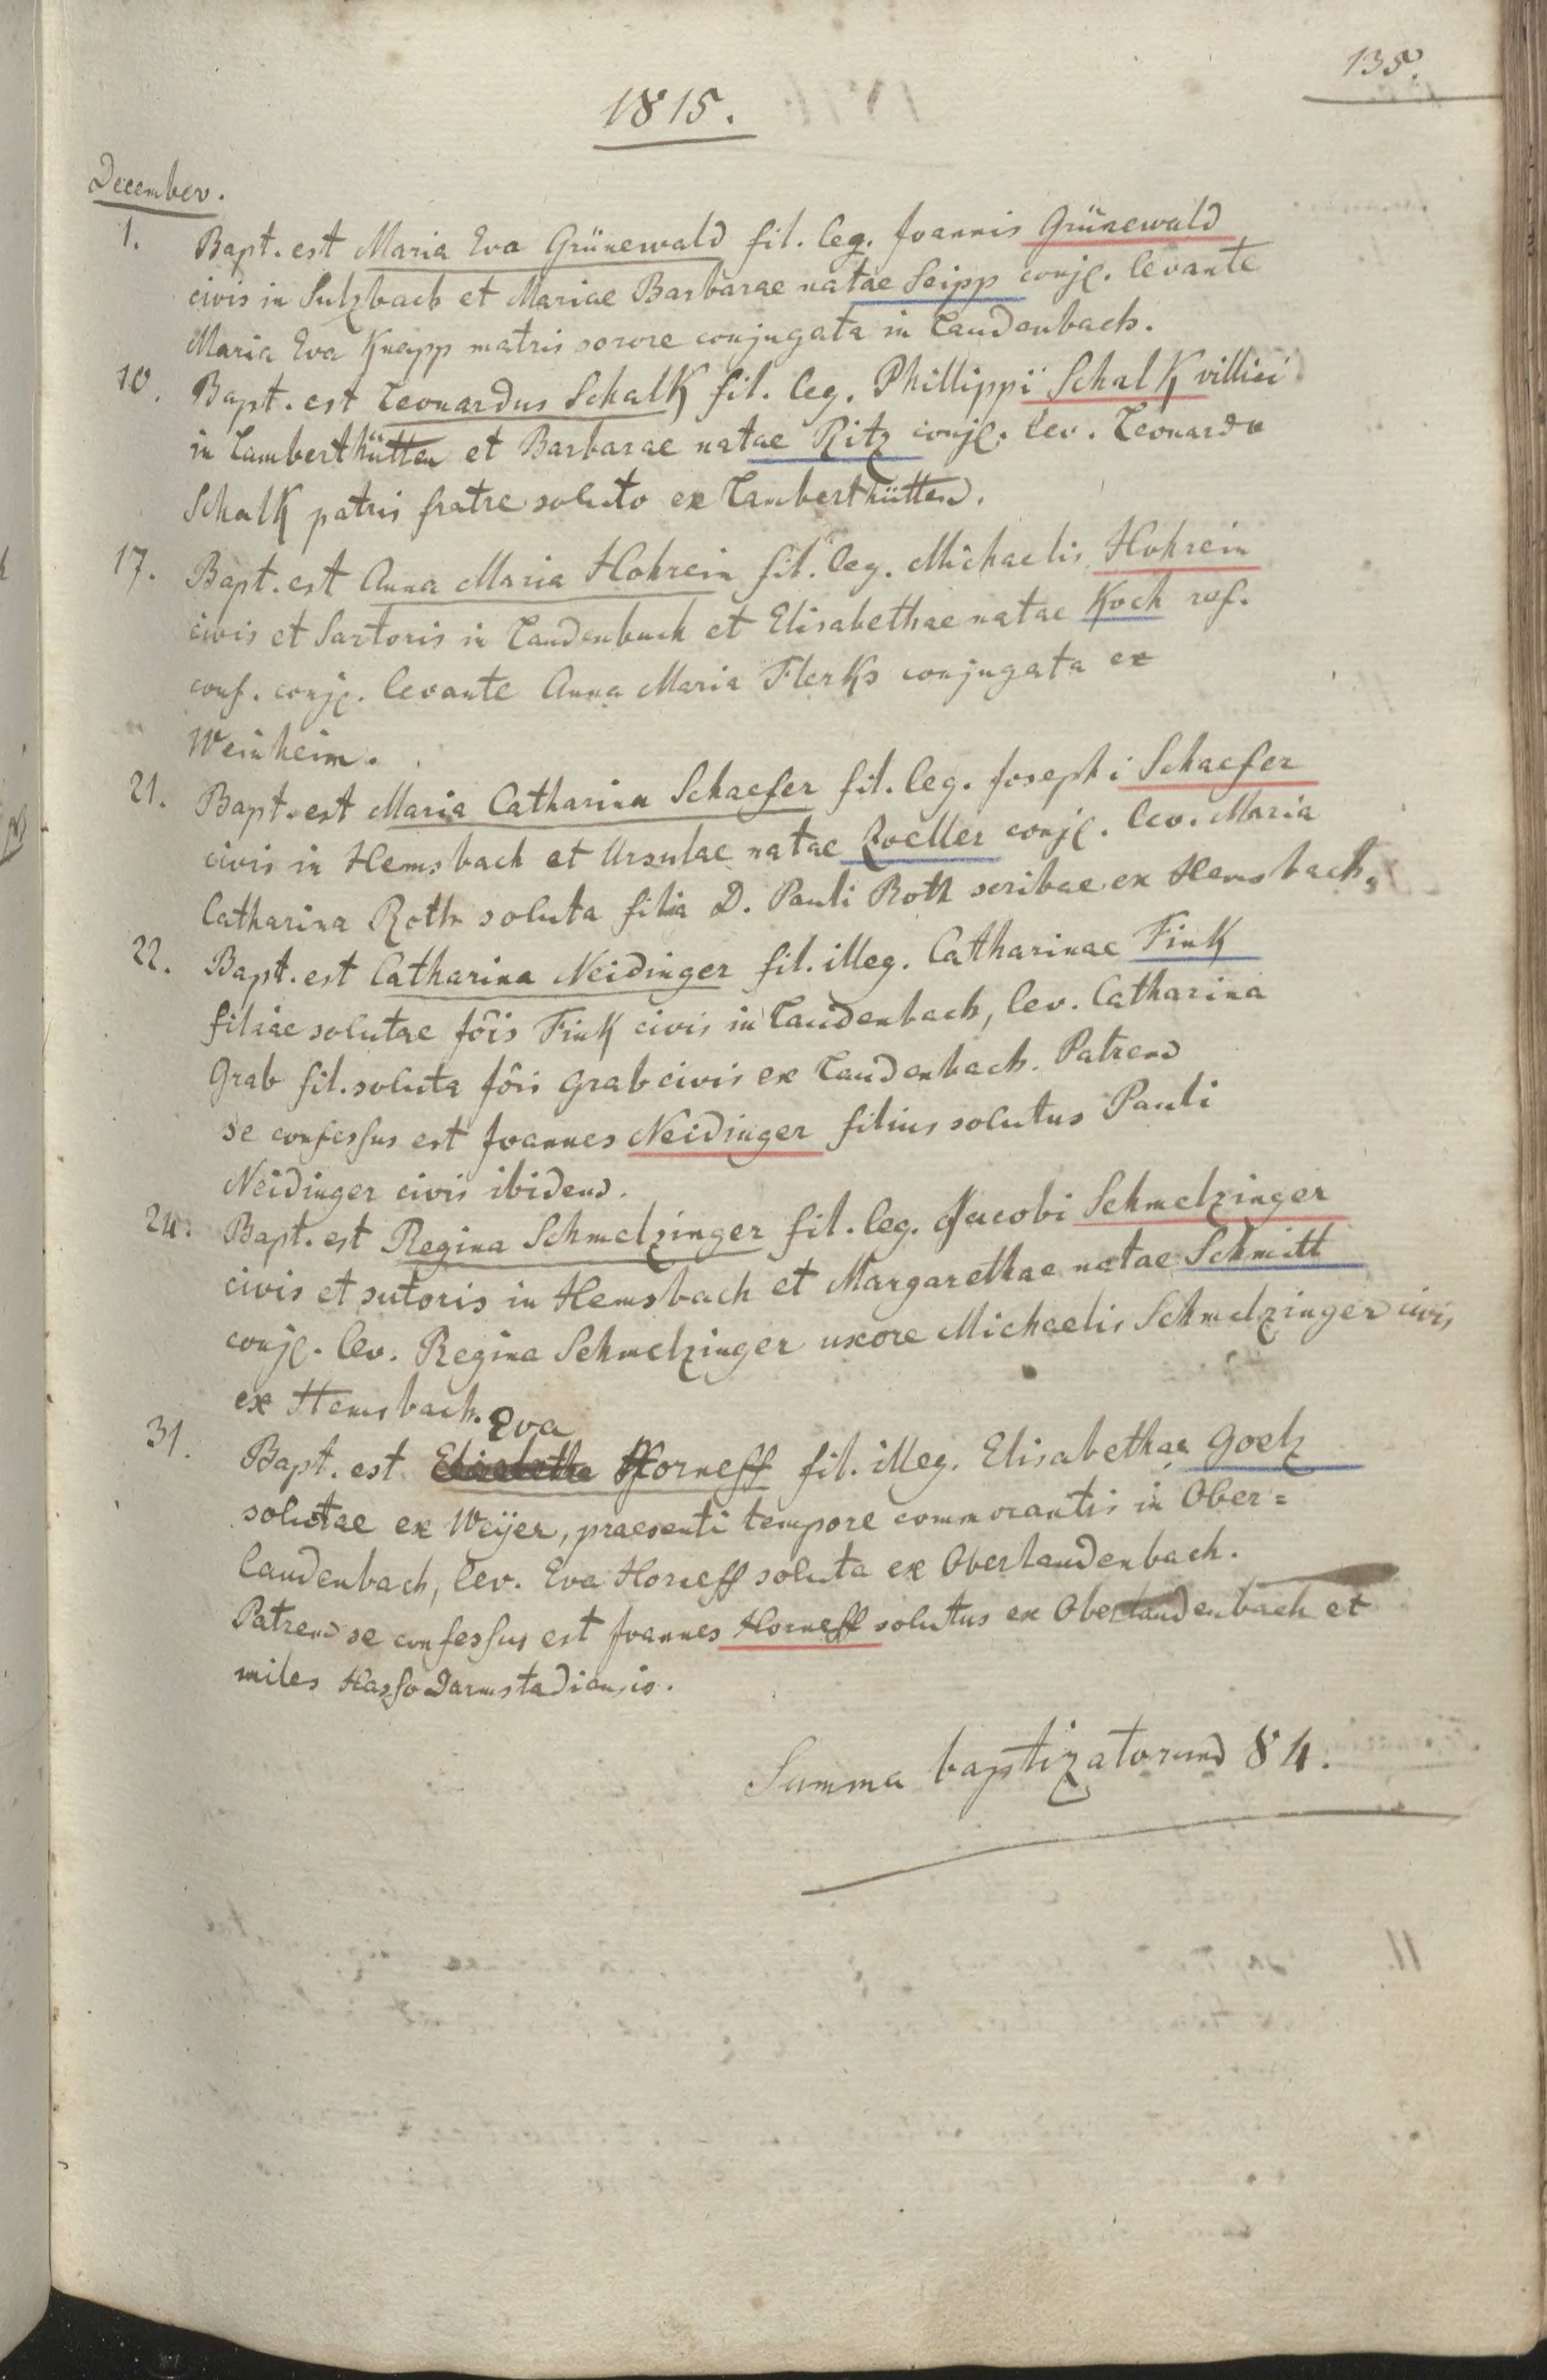 135.
1815.
December.
1. Bapt. est Maria Eva Grünewald fil. leg. Joannis Grünewald
civis in Sulzbach et Mariae Barbarae natae Seipp conjg. levante
Maria Eva Knapp matris sorore conjugata in Laudenbach.
10. Bapt. est Leonardus Schalk fil. leg. Phillippi Schalk villici
in Lamberthütten et Barbarae natae Ritz conjg. lev. Leonardo
Schalk patris fratre soluto ex Lamberthütten.
17. Bapt. est Anna Maria Hohrein fil. leg. Michaelis Hohrein
civis et Sartoris in Laudenbach et Elisabethae natae Koch ref.
conf. conjg. levante Anna Maria Flerks conjugata ex
Weinheim.
21. Bapt. est Maria Catharina Schaefer fil. leg. Josephi Schaefer
civis in Hemsbach et Ursulae natae Zoeller conjg. lev. Maria
Catharina Roth soluta filia D. Pauli Roth scribae ex Hemsbach.
22. Bapt. est Catharina Neidinger fil. illeg. Catharinae Fink
filiae solutae Jôis Fink civis in Laudenbach, lev. Catharina
Grab fil. soluta Jôis Grab civis ex Laudenbach. Patrem
se confessus est Joannes Neidinger filius solutus Pauli
Neidinger civis ibidem.
24. Bapt. est Regina Schmelzinger fil. leg. Jacobi Schmelzinger
civis et sutoris in Hemsbach et Margarethae natae Schmitt
conjg. lev. Regina Schmelzinger uxore Michaelis Schmelzinger civis
ex Hemsbach.
Eva
31. Bapt. est Elisabetha Horneff fil. illeg. Elisabethae Goelz
solutae ex Weijer, praesenti tempore commorantis in Ober=
laudenbach, lev. Eva Horneff soluta ex Oberlaudenbach.
Patrem se confessus est Joannes Horneff solutus ex Oberlaudenbach et
miles Hasso Darmstadiensis.
Summa baptizatorum 84.